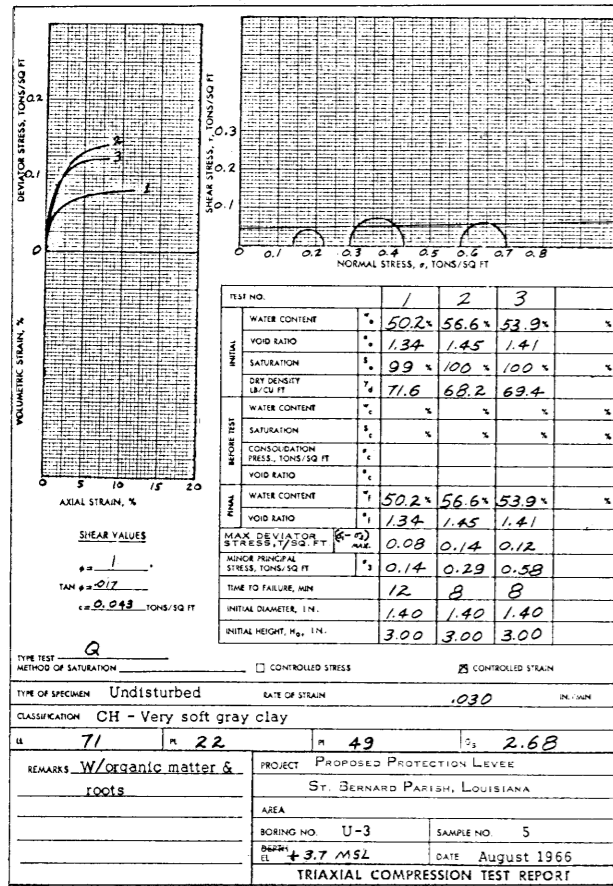 DEVIATOR STRESS, TONS/SQ FT
0.2
0.1
0
2
3
1
VOLUMETRIC STRAIN, %
0 5 10 15 20
AXIAL STRAIN, %
SHEAR STRESS, τ, TONS/SQ FT
0.3
0.2
0.1
0 0.1 0.2 0.3 0.4 0.5 0.6 0.7 0.8
NORMAL STRESS, σ, TONS/SQ FT
SHEAR VALUES
φ = 1 °
TAN φ = .017
c = 0.043 TONS/SQ FT
TEST NO. 1 2 3
INITIAL
WATER CONTENT w₀ 50.2 % 56.6 % 53.9 % %
VOID RATIO e₀ 1.34 1.45 1.41
SATURATION S₀ 99 % 100 % 100 % %
DRY DENSITY LB/CU FT γd 71.6 68.2 69.4
BEFORE TEST
WATER CONTENT wc % % % %
SATURATION Sc % % % %
CONSOLIDATION PRESS., TONS/SQ FT σc
VOID RATIO ec
FINAL
WATER CONTENT wf 50.2 % 56.6 % 53.9 % %
VOID RATIO ef 1.34 1.45 1.41
MAX DEVIATOR STRESS, T/SQ. FT (σ₁-σ₃) MAX. 0.08 0.14 0.12
MINOR PRINCIPAL STRESS, TONS/SQ FT σ₃ 0.14 0.29 0.58
TIME TO FAILURE, MIN 12 8 8
INITIAL DIAMETER, IN. 1.40 1.40 1.40
INITIAL HEIGHT, H₀, IN. 3.00 3.00 3.00
TYPE TEST Q
METHOD OF SATURATION CONTROLLED STRESS CONTROLLED STRAIN
TYPE OF SPECIMEN Undisturbed RATE OF STRAIN .030 IN./MIN
CLASSIFICATION CH - Very soft gray clay
LL 71 PL 22 PI 49 Gs 2.68
REMARKS W/organic matter &
roots
PROJECT PROPOSED PROTECTION LEVEE
ST. BERNARD PARISH, LOUISIANA
AREA
BORING NO. U-3 SAMPLE NO. 5
DEPTH
EL +3.7 MSL DATE August 1966
TRIAXIAL COMPRESSION TEST REPORT